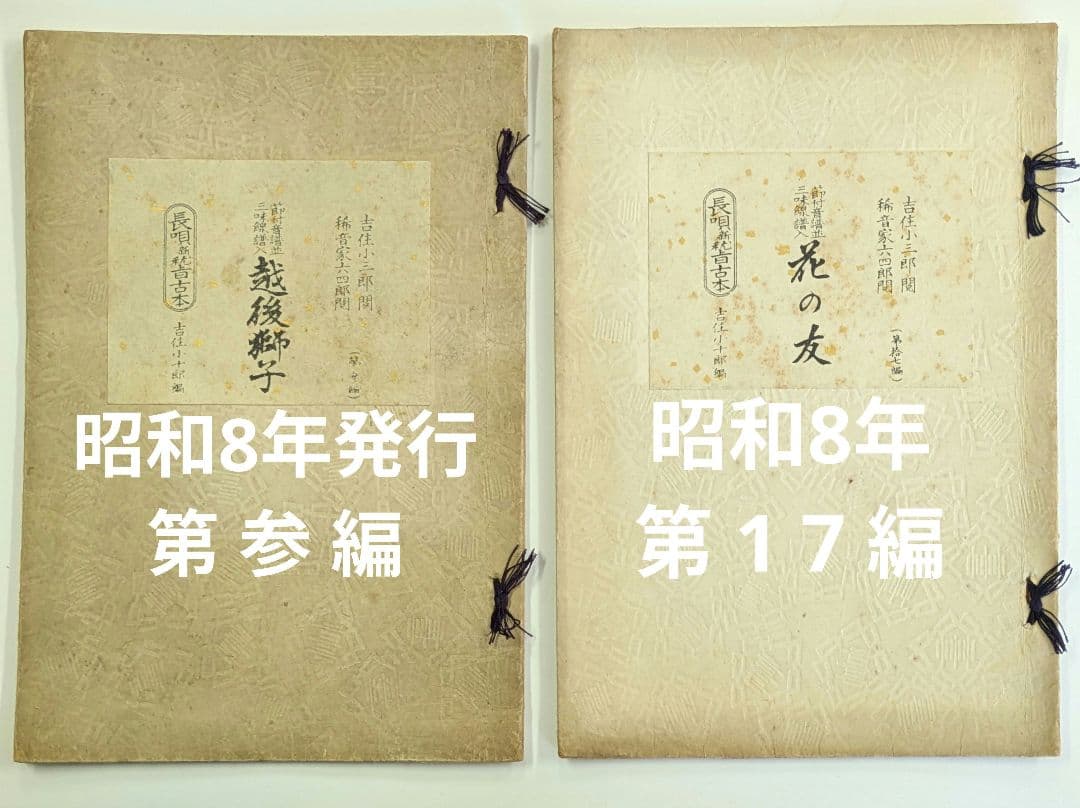 吉住小三郎閲
稀音家六四郎閲
(第参編)
節付音譜並
三味線譜入
越後獅子
長唄新稽古本
吉住小十郎編
昭和8年発行
第参編
吉住小三郎閲
稀音家六四郎閲
(第拾七編)
節付音譜並
三味線譜入
花の友
長唄新稽古本
吉住小十郎編
昭和8年
第17編